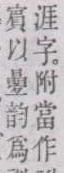 涯字。附當作
賓以曡韵爲